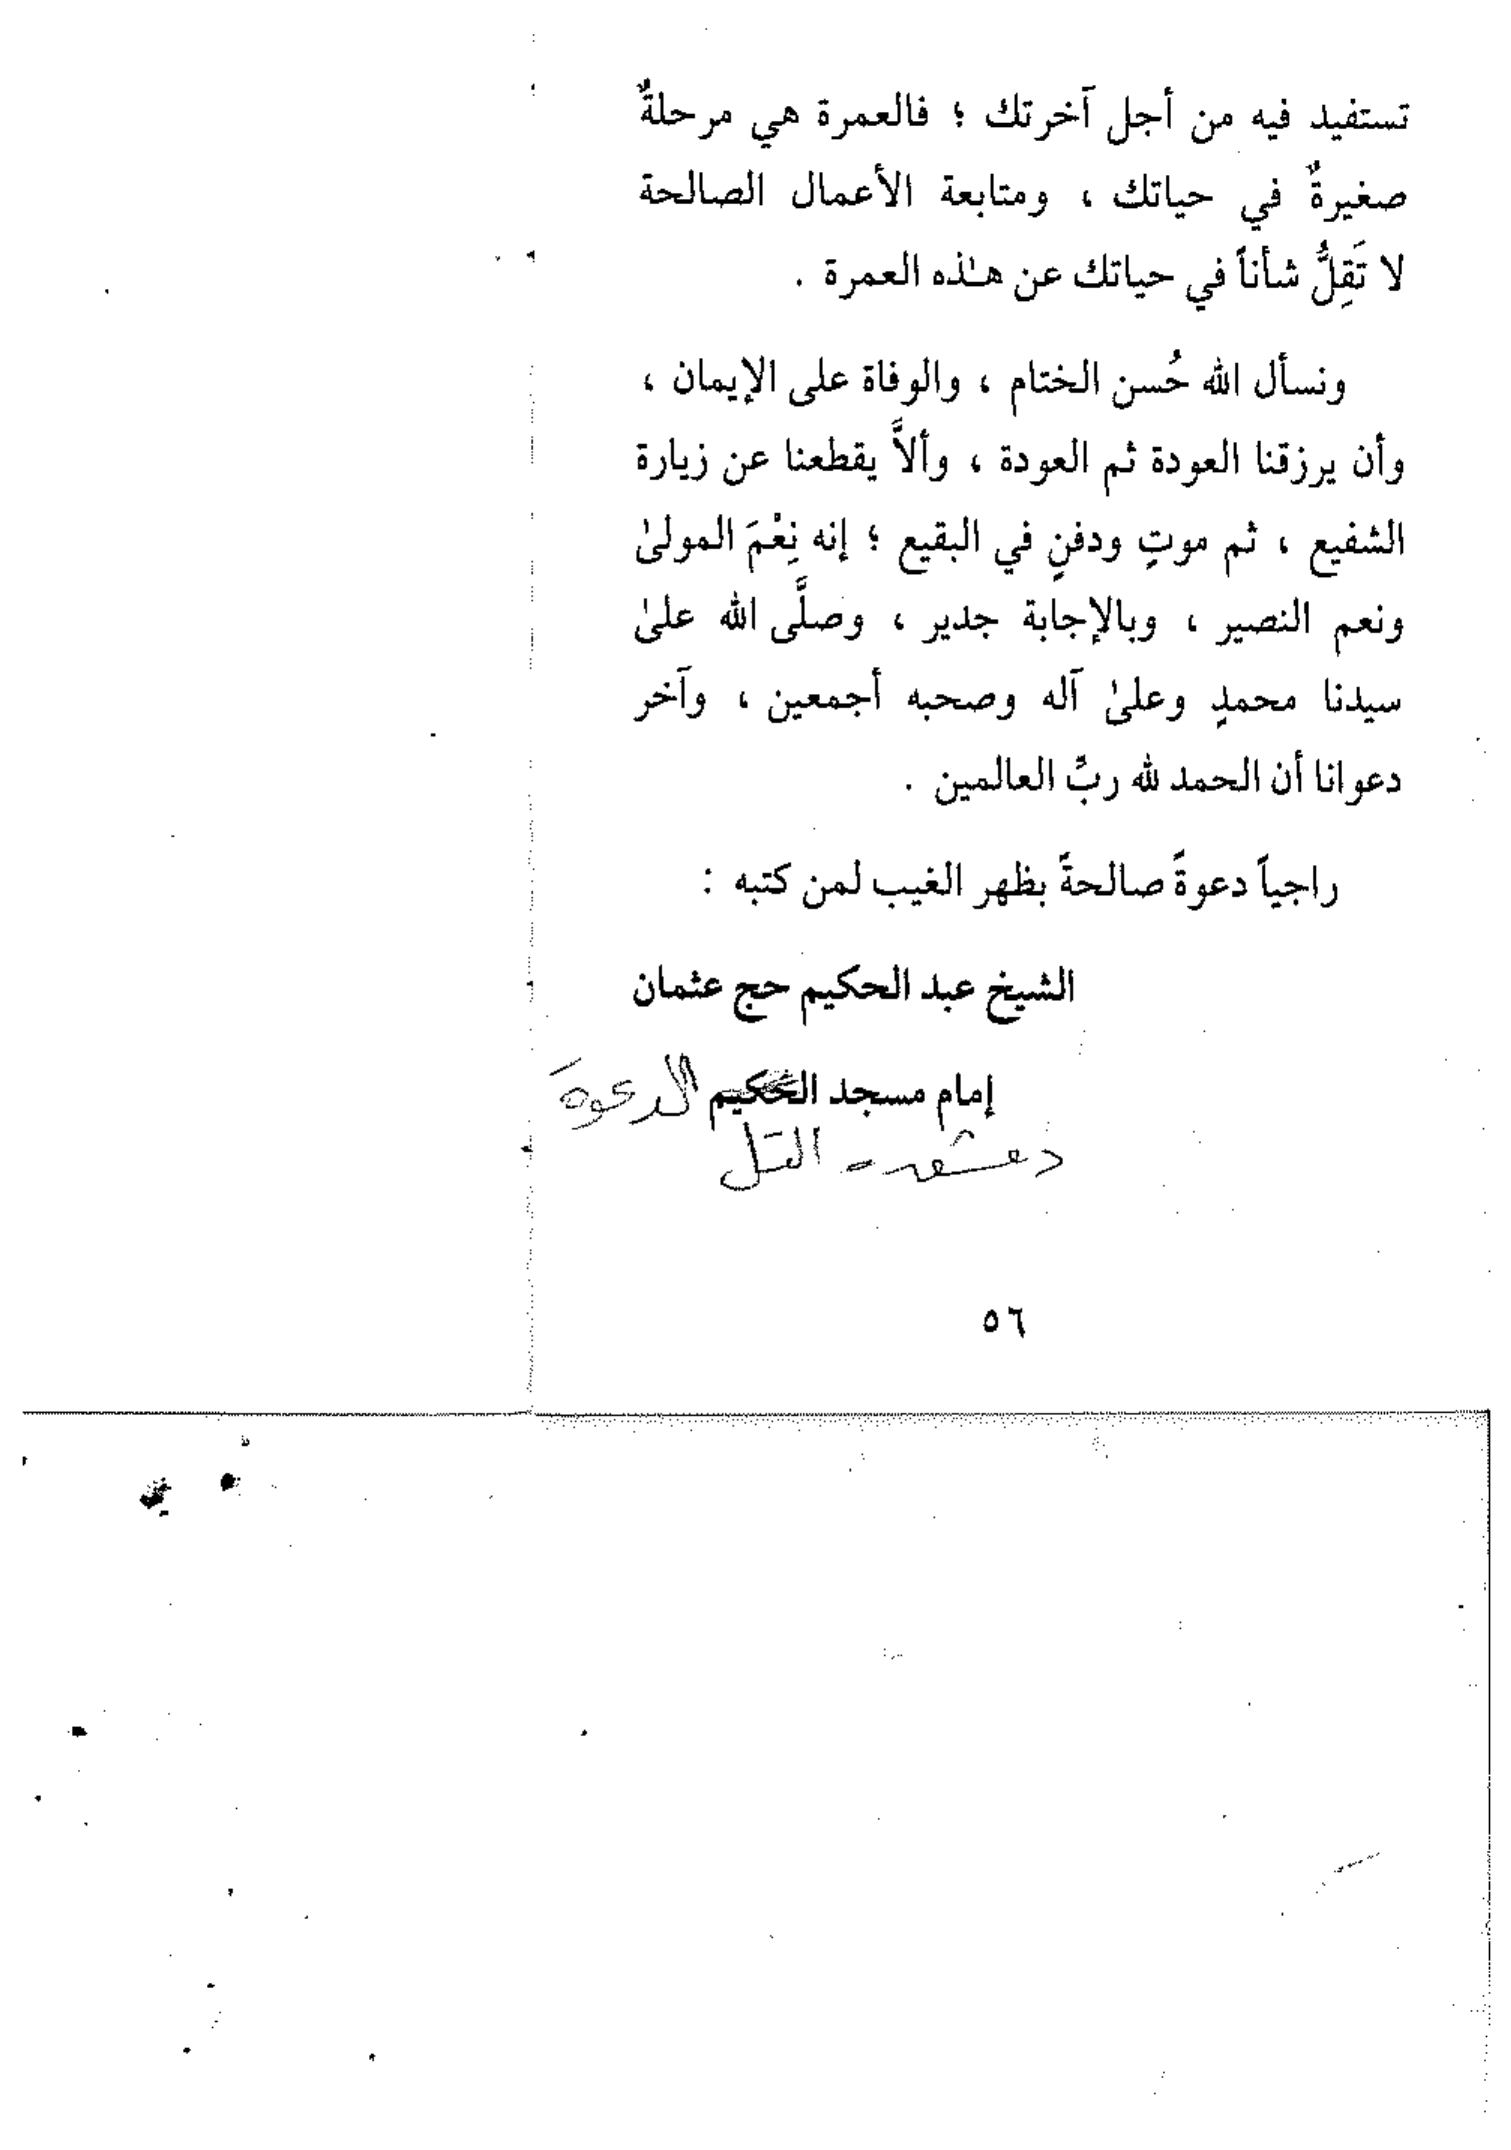 تستفيد فيه من أجل آخرتك ؛ فالعمرة هي مرحلةٌ
صغيرةٌ في حياتك ، ومتابعة الأعمال الصالحة
لا تَقِلُّ شأناً في حياتك عن هـٰذه العمرة .
ونسأل الله حُسن الختام ، والوفاة على الإيمان ،
وأن يرزقنا العودة ثم العودة ، وألاَّ يقطعنا عن زيارة
الشفيع ، ثم موتٍ ودفنٍ في البقيع ؛ إنه نِعْمَ المولىٰ
ونعم النصير ، وبالإجابة جدير ، وصلَّى الله علىٰ
سيدنا محمدٍ وعلىٰ آله وصحبه أجمعين ، وآخر
دعوانا أن الحمد لله ربِّ العالمين .
راجياً دعوةً صالحةً بظهر الغيب لمن كتبه :
الشيخ عبد الحكيم حج عثمان
إمام مسجد الحكيم الدعوة
دمشق - التل
٥٦